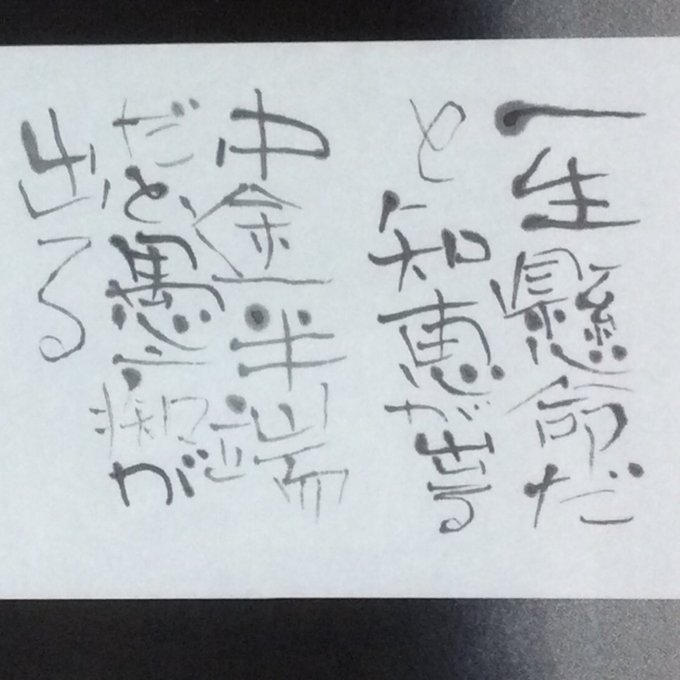 一生懸命だ
と知恵が出る
中途半端
だと愚痴が
出る